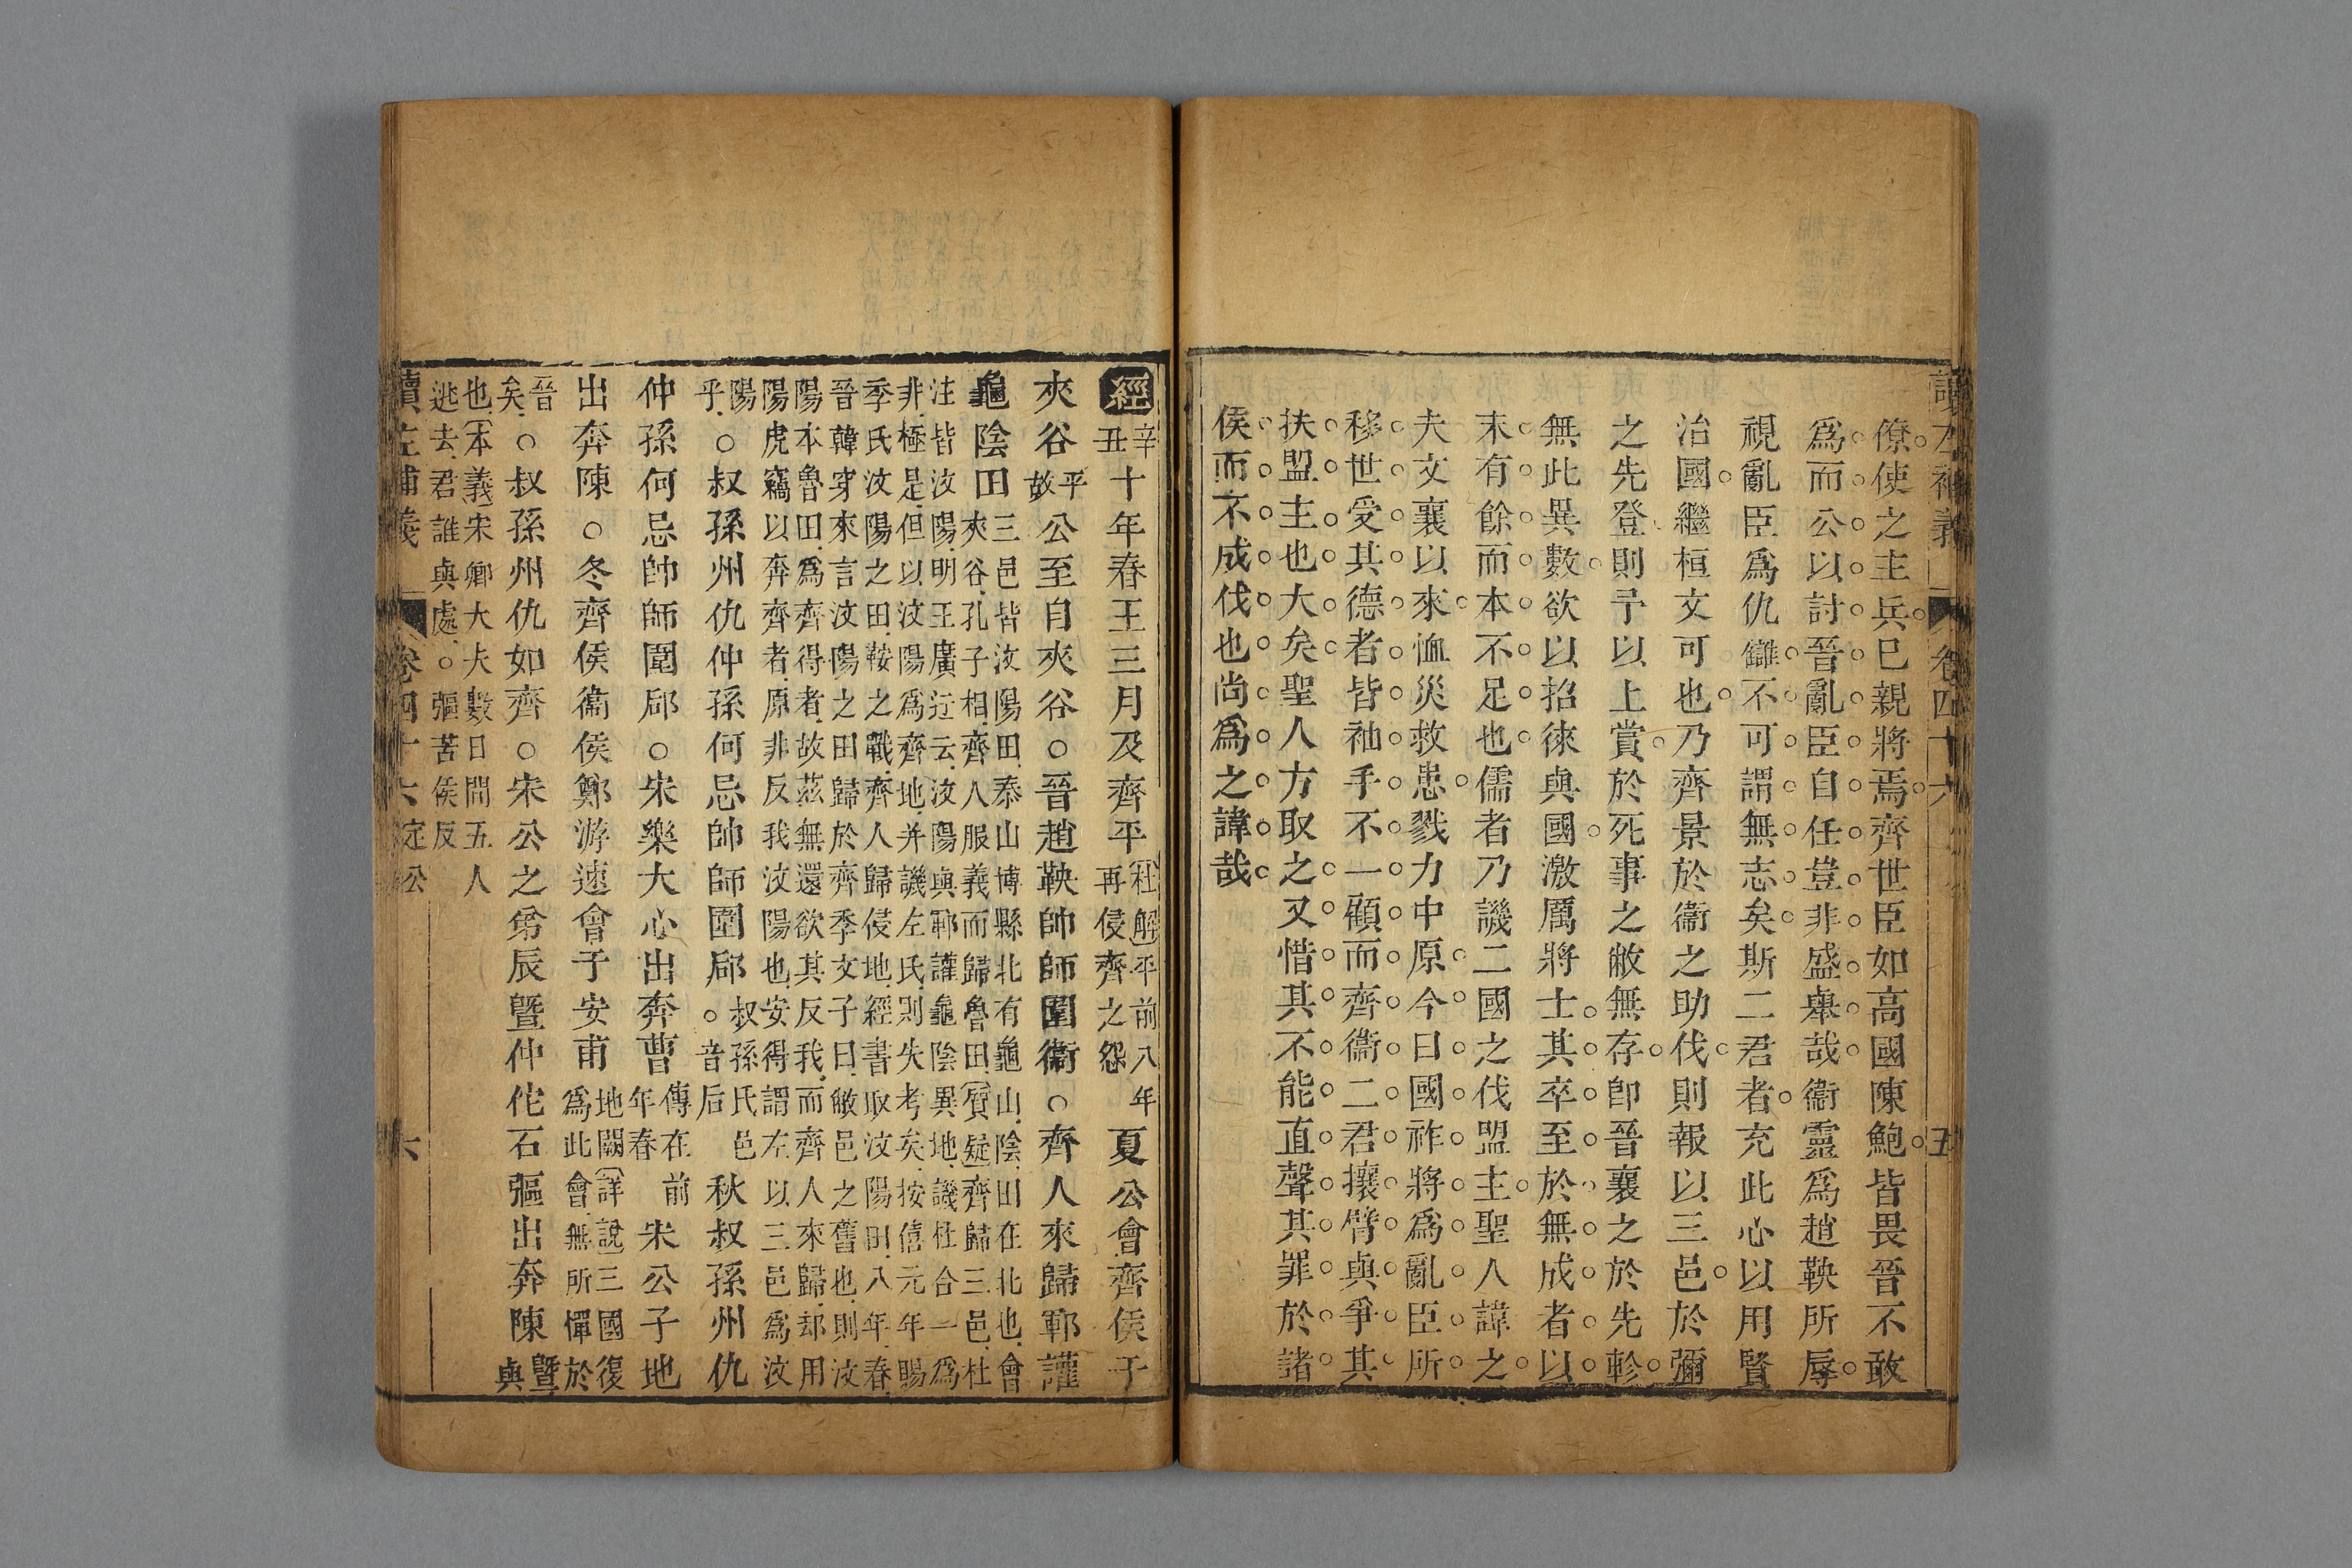 讀左補義 卷四十六 五
僚使之主兵巳親將焉齊世臣如高國陳鮑皆畏晉不敢
爲而公以討晉亂臣自任豈非盛舉哉衞靈爲趙鞅所辱
視亂臣爲仇讎不可謂無志矣斯二君者充此心以用賢
治國繼桓文可也乃齊景於衞之助伐則報以三邑於彌
之先登則予以上賞於死事之敝無存卽晉襄之於先軫
無此異數欲以招徠與國激厲將士其卒至於無成者以
末有餘而本不足也儒者乃譏二國之伐盟主聖人諱之
夫文襄以來恤災救患戮力中原今日國祚將爲亂臣所
移世受其德者皆袖手不一顧而齊衞二君攘臂與爭其
扶盟主也大矣聖人方取之又惜其不能直聲其罪於諸
侯而不成伐也尚爲之諱哉
經辛丑十年春王三月及齊平杜解平前八年再侵齊之怨夏公會齊侯于
夾谷平故公至自夾谷○晉趙鞅帥師圍衞○齊人來歸鄆讙
龜陰田三邑皆汶陽田泰山博縣北有龜山陰田在北也會夾谷孔子相齊人服義而歸魯田質疑齊歸三邑杜
注皆汶陽明王廣近云汶陽與鄆讙龜陰異地譏杜合一爲
非極是但以汶陽爲齊地并譏左氏則失考矣按僖元年賜
季氏汶陽之田鞍之戰齊人歸侵地經書取汶陽田八年春
晉韓穿來言汶陽之田歸於齊季文子曰敝邑之舊也則汶
陽本魯田爲齊得者故茲無還欲其反我而齊人來歸却用
陽虎竊以奔齊者原非反我汶陽也安得謂左以三邑爲汶
陽乎○叔孫州仇仲孫何忌帥師圍郈叔孫氏邑○音后秋叔孫州仇
仲孫何忌帥師圍郈○宋樂大心出奔曹傳在前年春宋公子地
出奔陳○冬齊侯衞侯鄭游速會于安甫地闕詳說三國復爲此會無所憚於
晉矣○叔孫州仇如齊○宋公之弟辰曁仲佗石彄出奔陳曁與
也本義宋卿大夫數日間五人
逃去君誰與處○彄苦侯反
讀左補義 卷四十六 定公 六